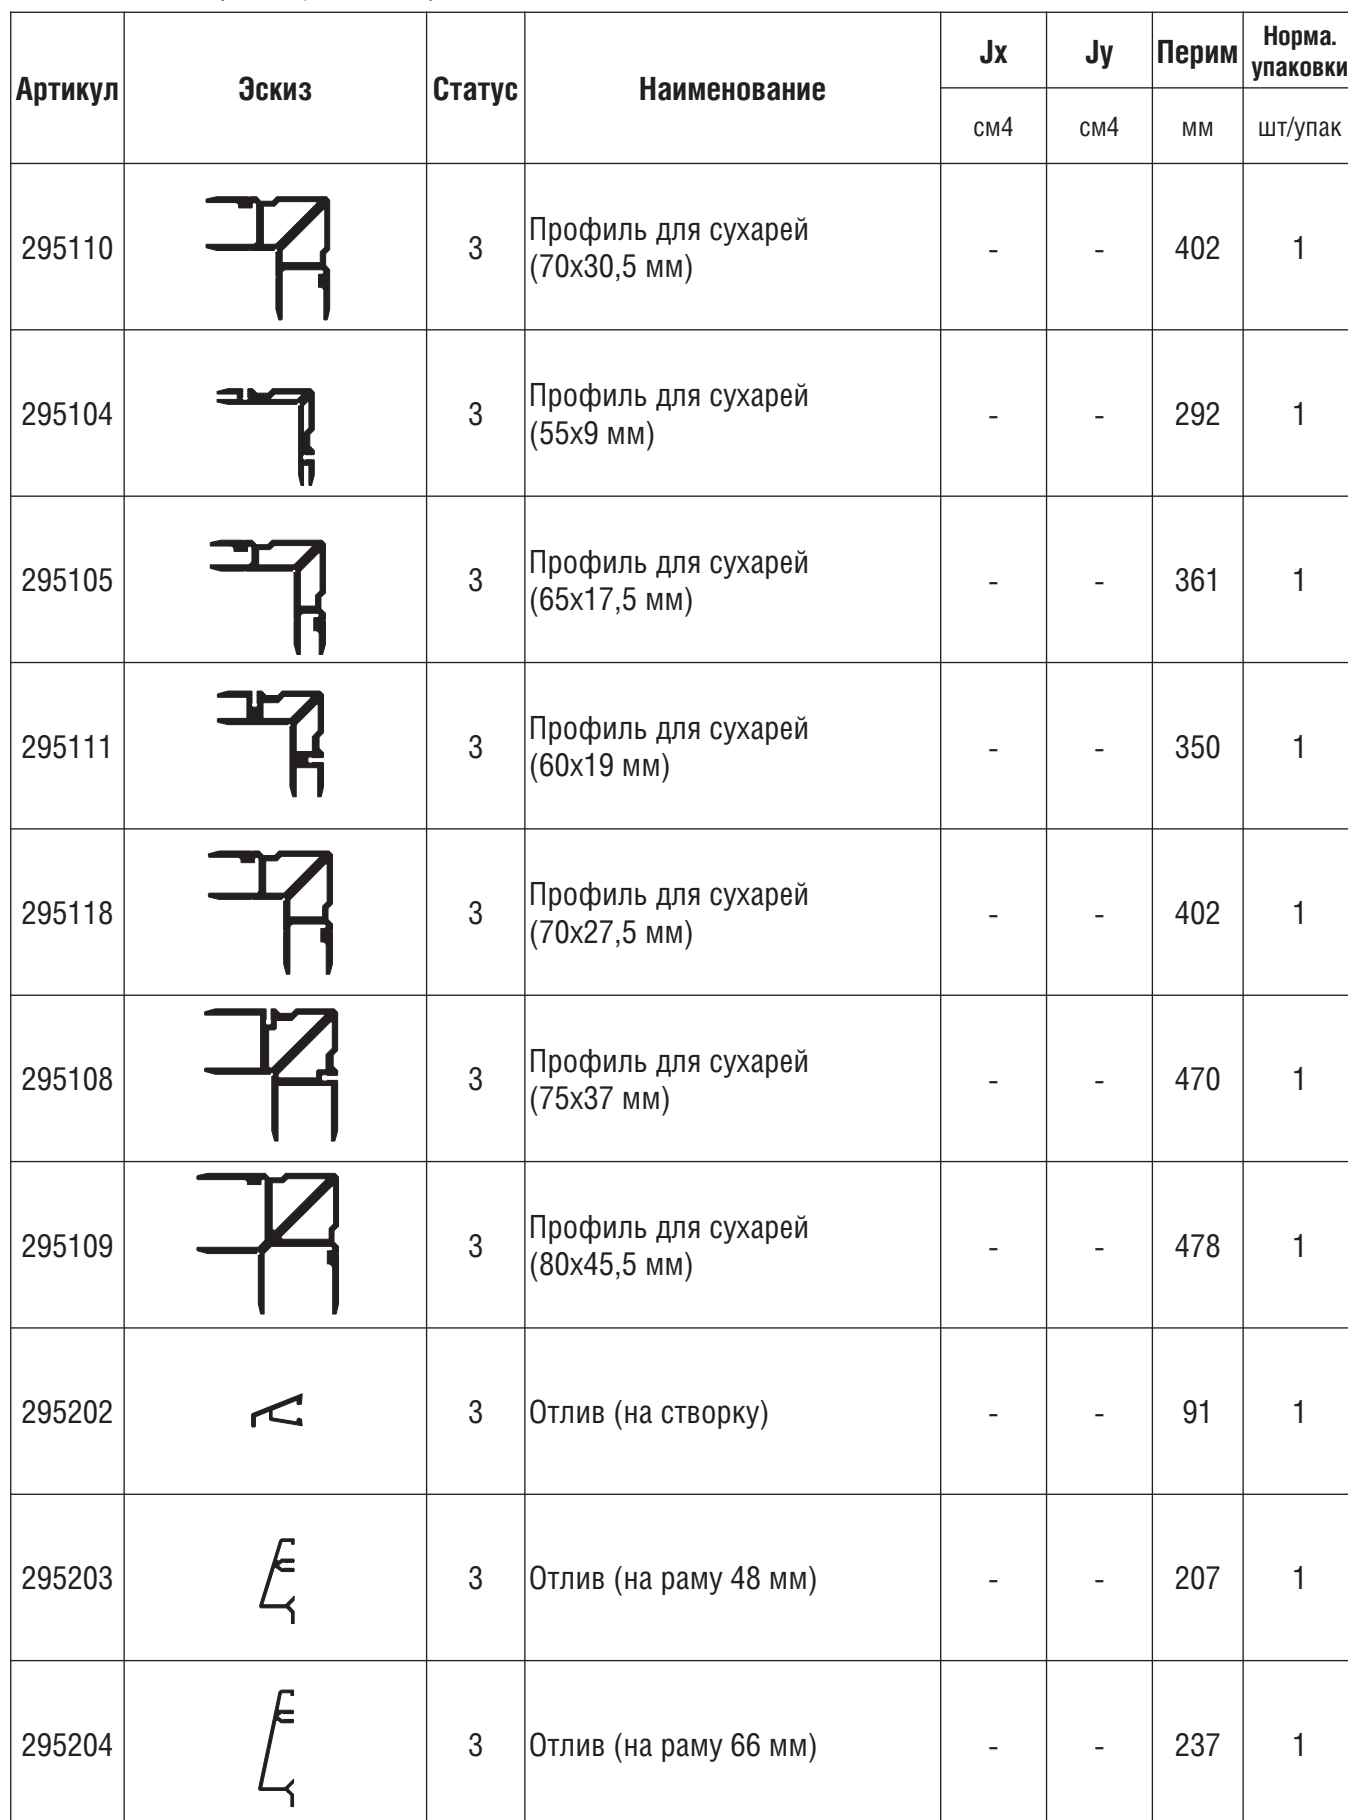 Артикул Эскиз Статус Наименование Jx Jy Перим Норма. упаковки
см4 см4 мм шт/упак
295110 3 Профиль для сухарей - - 402 1
(70х30,5 мм)
295104 3 Профиль для сухарей - - 292 1
(55х9 мм)
295105 3 Профиль для сухарей - - 361 1
(65х17,5 мм)
295111 3 Профиль для сухарей - - 350 1
(60х19 мм)
295118 3 Профиль для сухарей - - 402 1
(70х27,5 мм)
295108 3 Профиль для сухарей - - 470 1
(75х37 мм)
295109 3 Профиль для сухарей - - 478 1
(80х45,5 мм)
295202 3 Отлив (на створку) - - 91 1
295203 3 Отлив (на раму 48 мм) - - 207 1
295204 3 Отлив (на раму 66 мм) - - 237 1